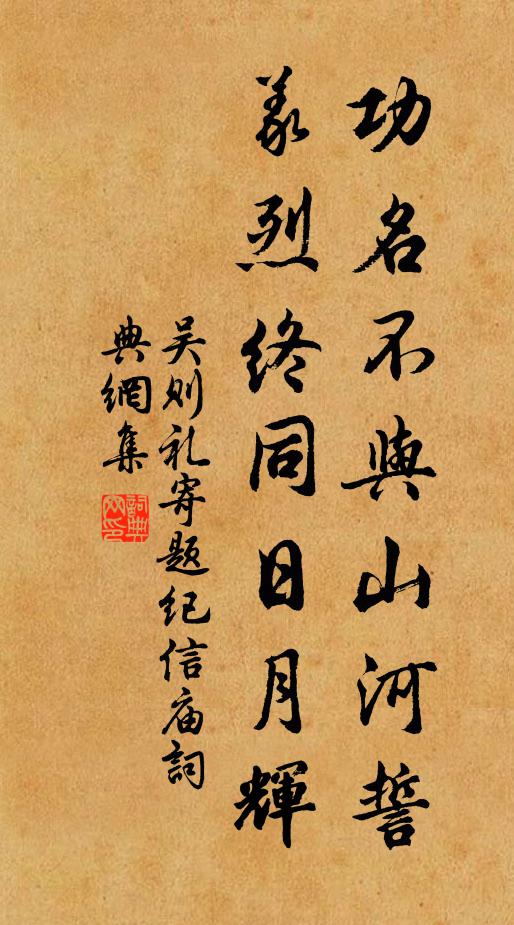 功名不與山河誓
義烈終同日月輝
吴则礼寄题纪信庙詞
典網集
詞典網印